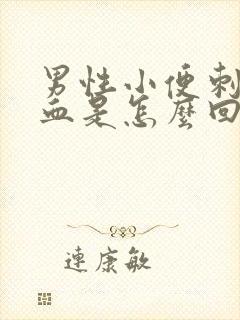 男性小便刺
血是怎麼回
連康敏